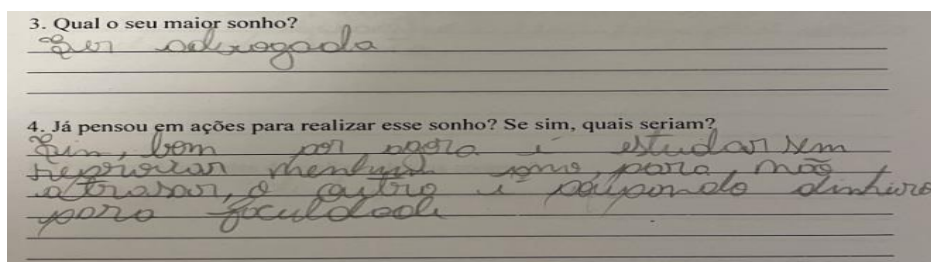 3. Qual o seu maior sonho?
Ser advogada
4. Já pensou em ações para realizar esse sonho? Se sim, quais seriam?
Sim, bom por agora é estudar sem
reprovar nenhum ano, para não
atrasar, o outro é poupando dinheiro
para faculdade